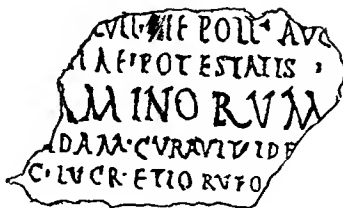 POLL AVG
AE·POTESTATIS·
AMINORVM
DAM·CVRAVIT·IDE
C·LVCR·ETIO RVFO